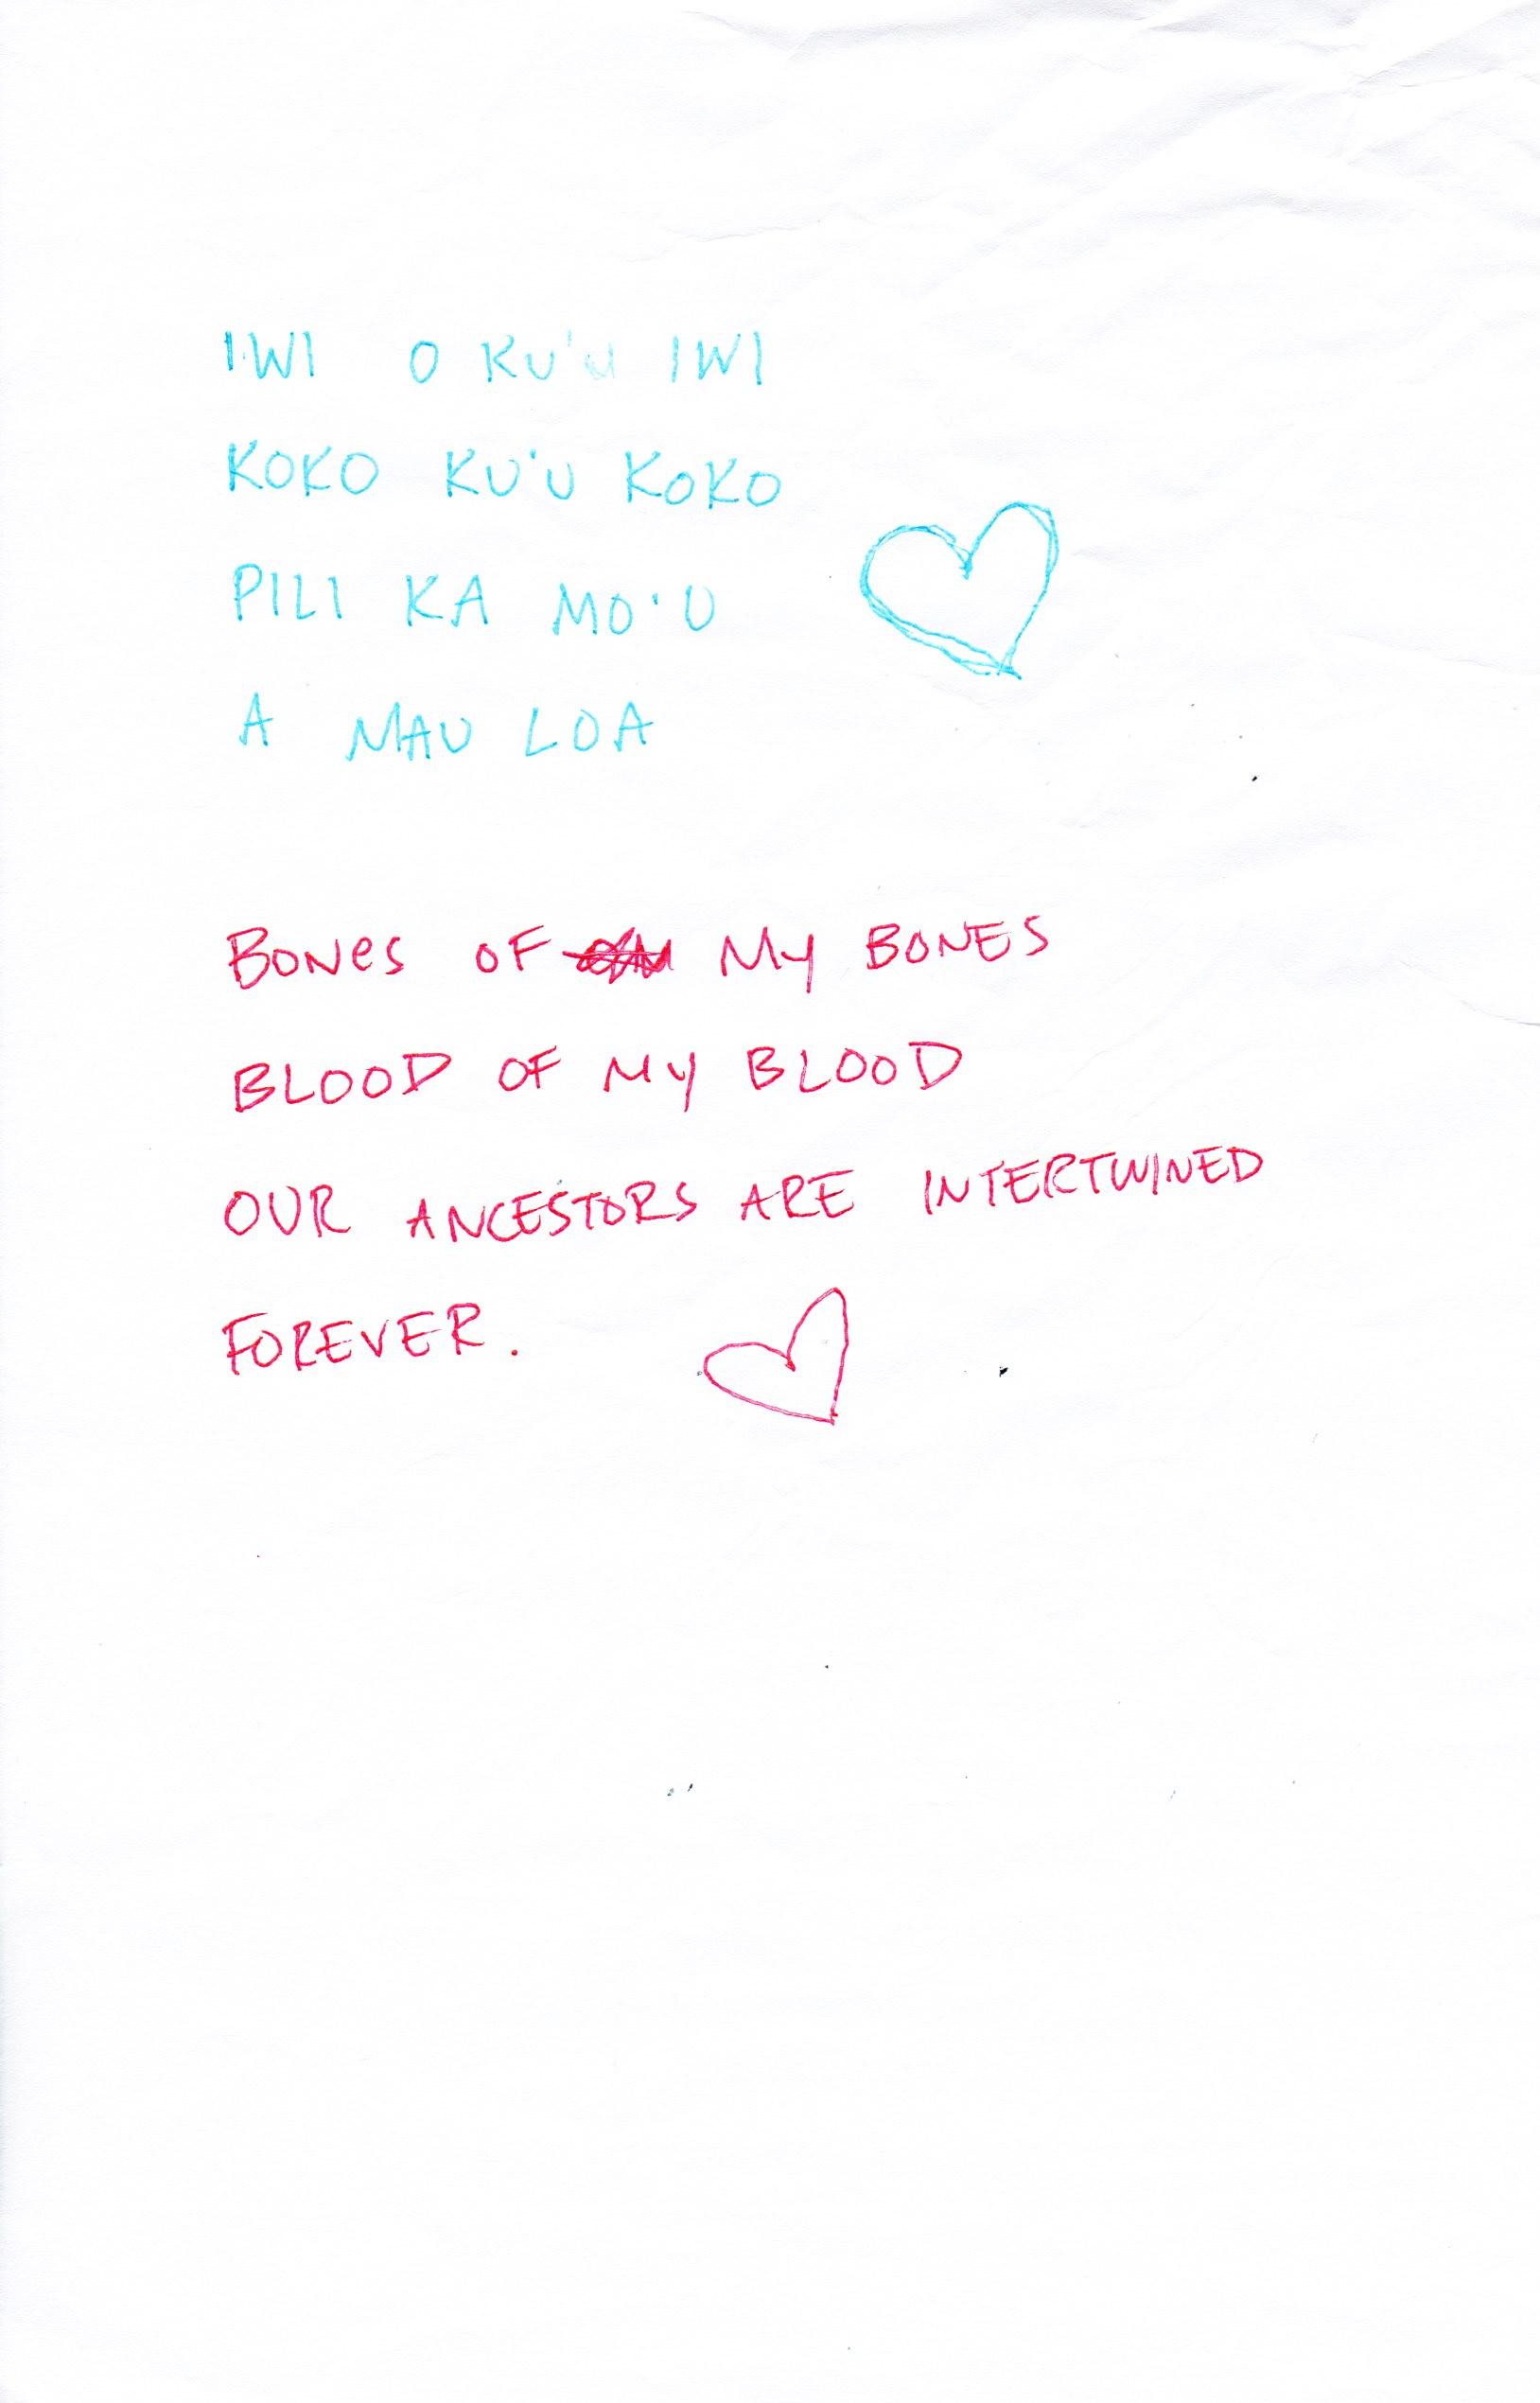 IWI O KU'U IWI
KOKO KU'U KOKO
PILI KA MO'O
A MAU LOA
BONes OF My BONES
BLOOD OF My BLOOD
OUR ANCESTORS ARE INTERTWINED
FOREVER.